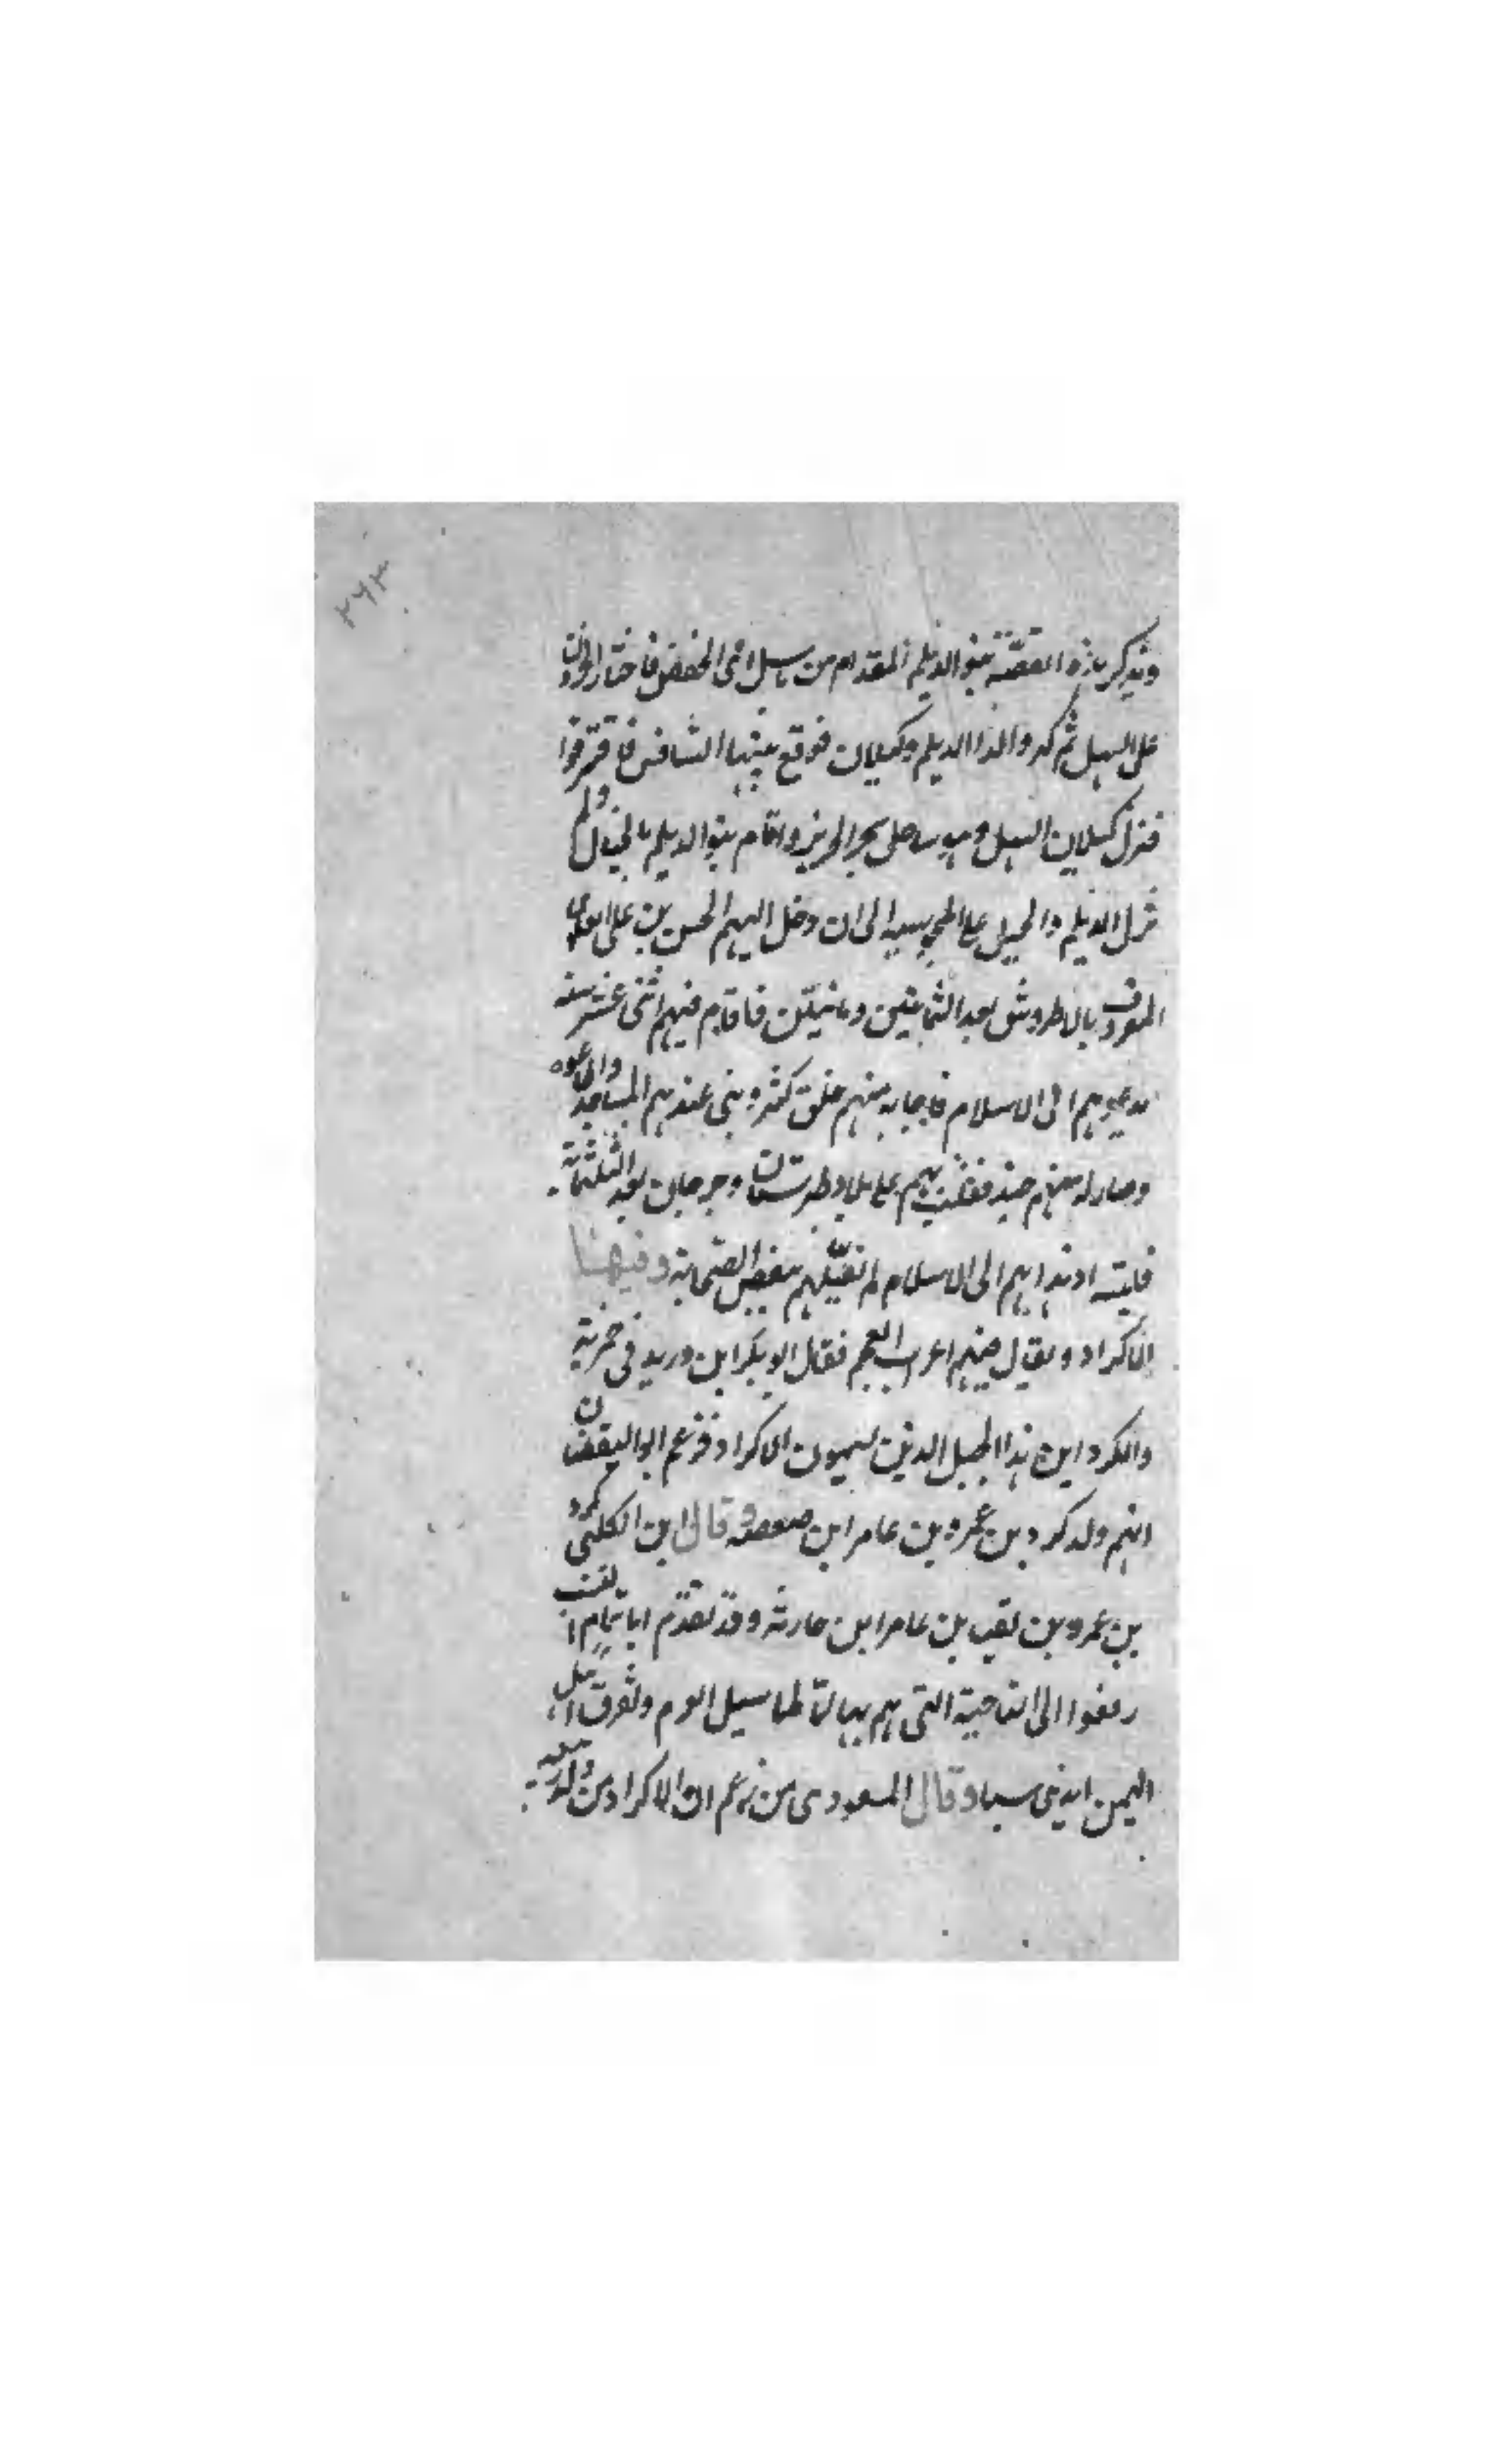 ٢٦٣
ويذكر هذه القصة بنو الديلم المقدام من باسل اعى الخفض فاختار الحزن
على السهل ثم كبر والدا الديلم وكيلان فوقع بينهما التنافس فافترقوا
فنزل كيلان السهل وهو ساحل بحر الخزر واقام بنو الديلم بالجبال ولم
تزل الديلم والجيل على المجوسية الى ان دخل اليهم الحسن بن على العلوى
المعروف بالاطروش بعد الثمانين ومائتين فاقام فيهم اثنى عشر سنة
يدعوهم الى الاسلام فاجابه منهم خلق كثير وبنى عندهم المساجد
وصار له منهم جند فغلب بهم على بلاد طبرستان وجرجان بعد الثلثمائة
فليته اذ هداهم الى الاسلام لم يقبلهم ببغض الصحابة وفيها
الاكراد ويقال منهم اعراب العجم فقال ابو بكر ابن دريد فى جمهرته
والكرد ابن هذا الجيل الذين يسمون الاكراد فزعم ابو اليقضان
انهم ولد كرد بن عمرو بن عامر ابن صعصعة وقال ابن الكلبى كرد
بن عمرو بن نقيب بن عامر ابن حارثة وقد تقدم
وقعوا الى الناحية التى هم بها لما سيل العرم وتفرق اهل
اليمن ايدى سبا وقال المسعودى من زعم ان الاكراد من ولد ربيعة